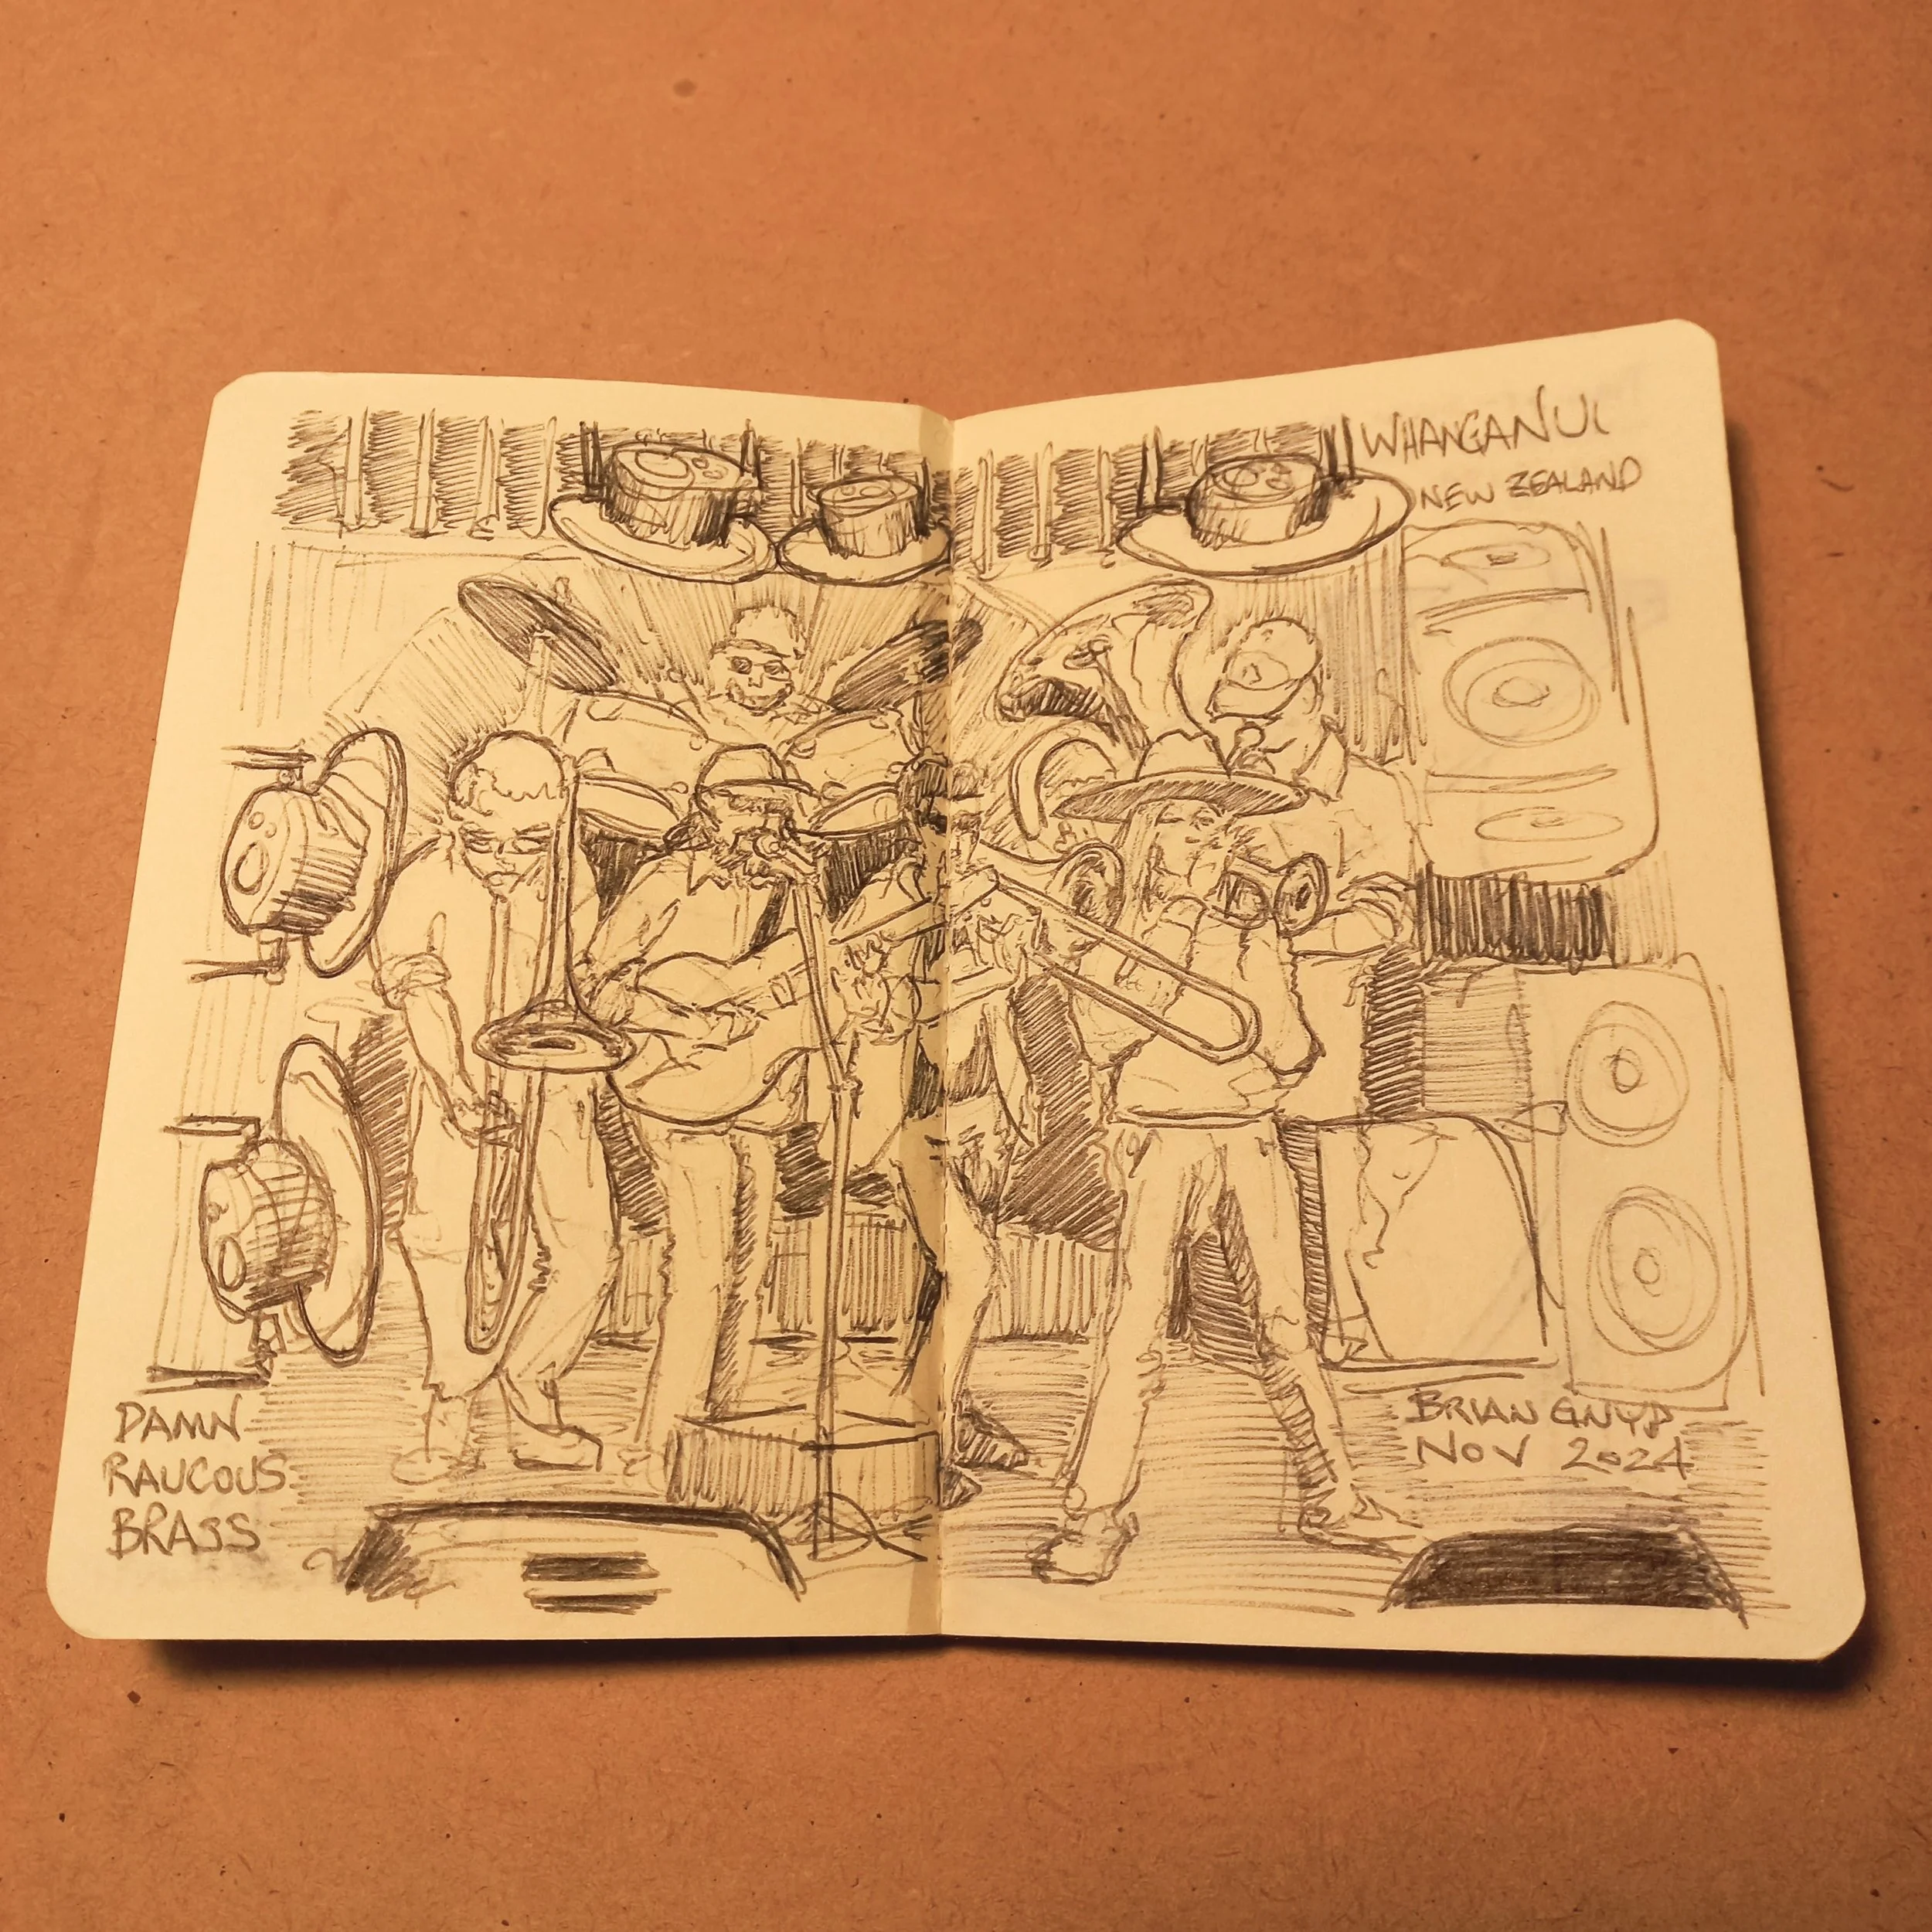 WHANGANUI
NEW ZEALAND
DAMN
RAUCOUS
BRASS
BRIAN GNYP
NOV 2024